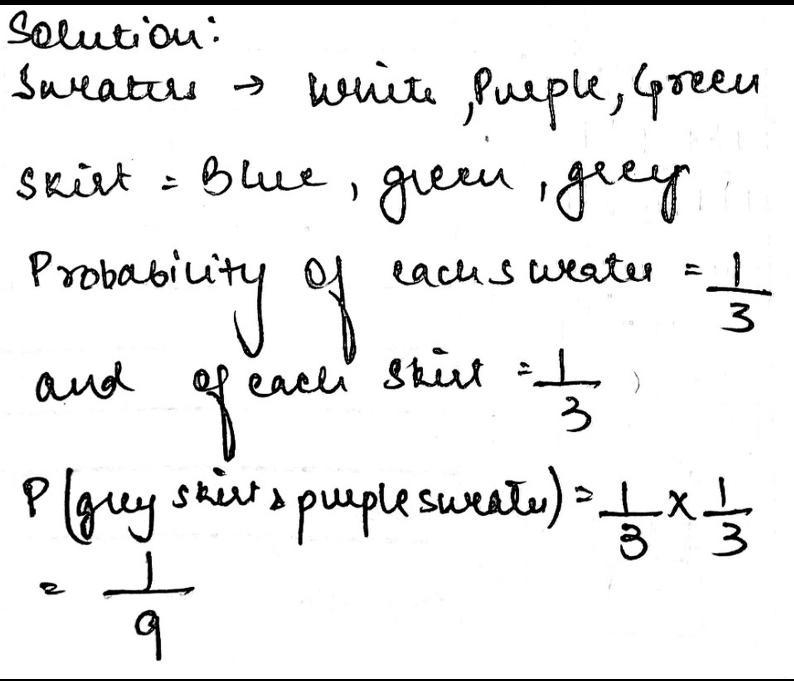 Solution:
Sweaters → White, Purple, Green
Skirt = Blue, green, grey
Probability of each sweater = 1/3
and of each skirt = 1/3
P(grey skirt & purple sweater) = 1/3 × 1/3
= 1/9